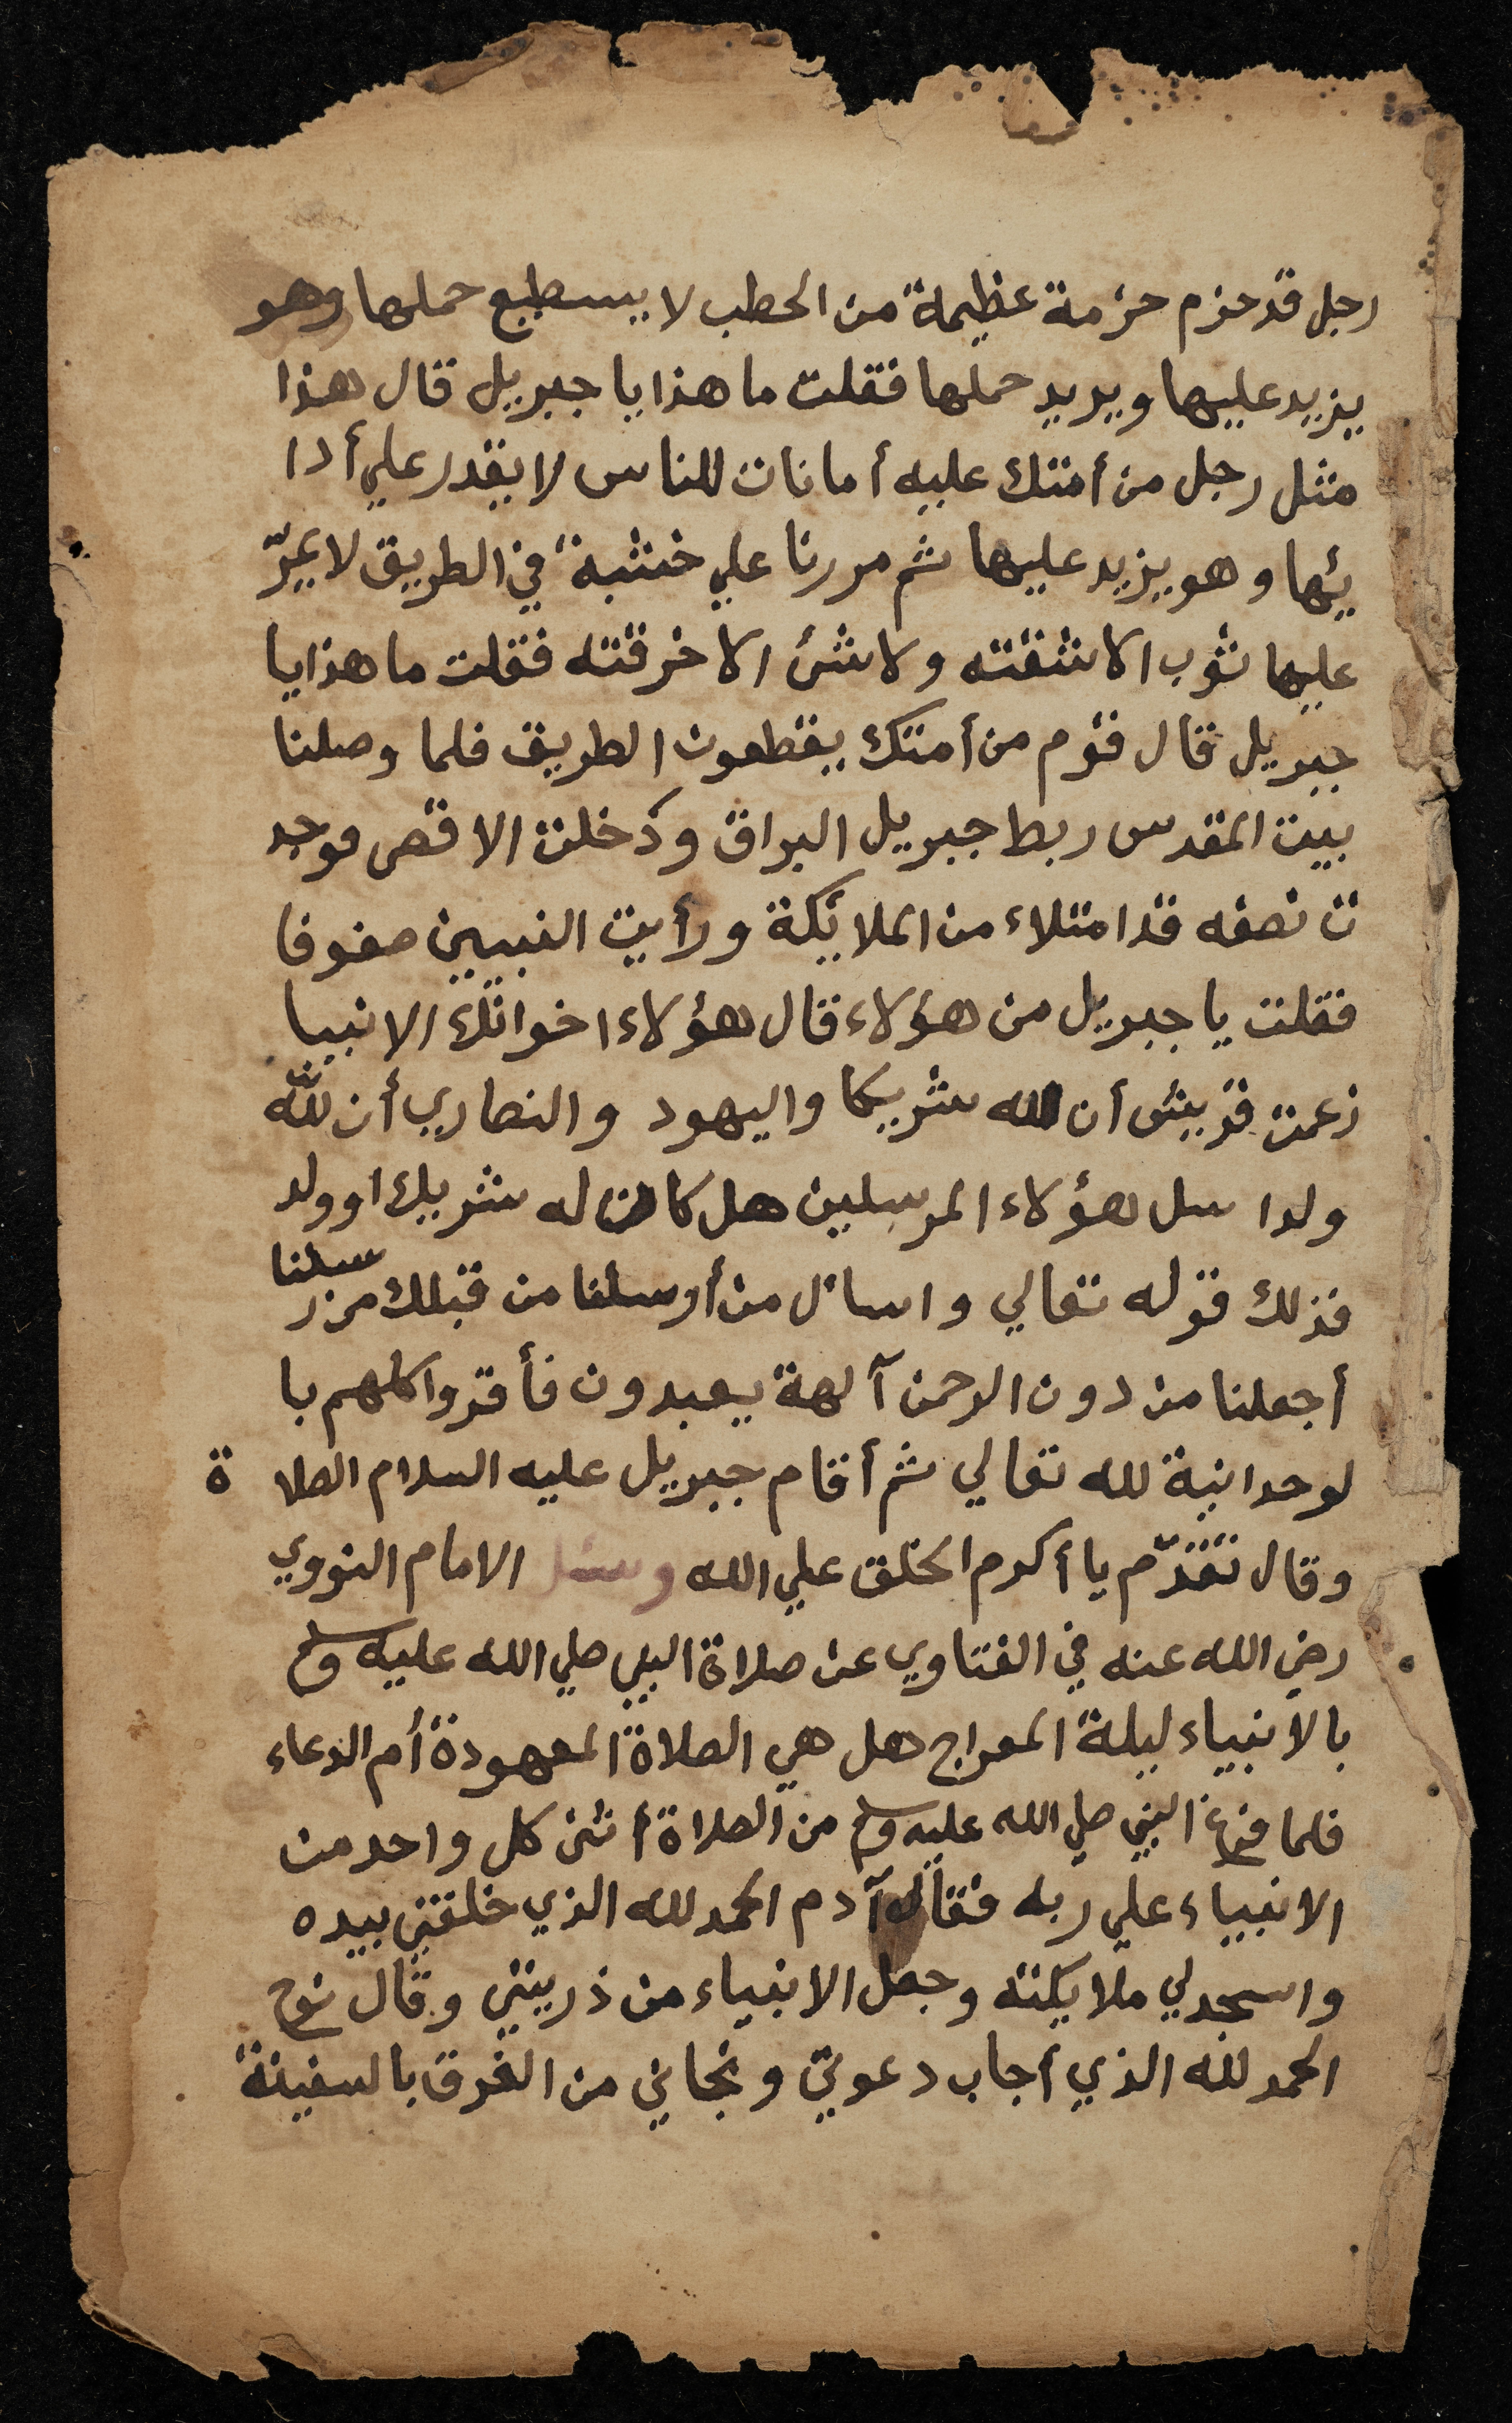 رجل قد حزم حزمة عظيمة من الحطب لا يسطيع حملها وهو
يزيد عليها ويريد حملها فقلت ما هذا يا جبريل قال هذا
مثل رجل من أمتك عليه أمانات للناس لا يقدر علي أدا
ئها وهو يزيد عليها ثم مررنا علي خشبة في الطريق لا يمرّ
عليها ثوب الا شقته ولا شئ الا خرقته فقلت ما هذا يا
جبريل قال قوم من أمتك يقطعون الطريق فلما وصلنا
بيت المقدس ربط جبريل البراق ودخلت الاقصى فوجد
ت نصفه قد امتلاء من الملايكة ورأيت النبيين صفوفا
فقلت يا جبريل من هؤلاء قال هؤلاء اخوانك الانبيا
زعمت قريش أن لله شريكا واليهود والنصاري أن لله
ولدا سل هؤلاء المرسلين هل كان له شريك او ولد
فذلك قوله تعالي واسأل من أرسلنا من قبلك من رسلنا
أجعلنا من دون الرحمن آلهة يعبدون فأقروا كلهم با
لوحدانية لله تعالي ثم أقام جبريل عليه السلام الصلا ة
وقال تقدّم يا أكرم الخلق علي الله وسئل الامام النووي
رضي الله عنه في الفتاوي عن صلاة النبي صلي الله عليه وسلم
بالأنبياء ليلة المعراج هل هي الصلاة المعهودة أم الدعاء
فلما فرغ النبي صلي الله عليه وسلم من الصلاة أثنى كل واحد من
الانبياء علي ربه فقال آدم الحمد لله الذي خلقني بيده
واسجد لي ملايكته وجعل الانبياء من ذريتي وقال نوح
الحمد لله الذي أجاب دعوتي ونجاني من الغرق بالسفينة